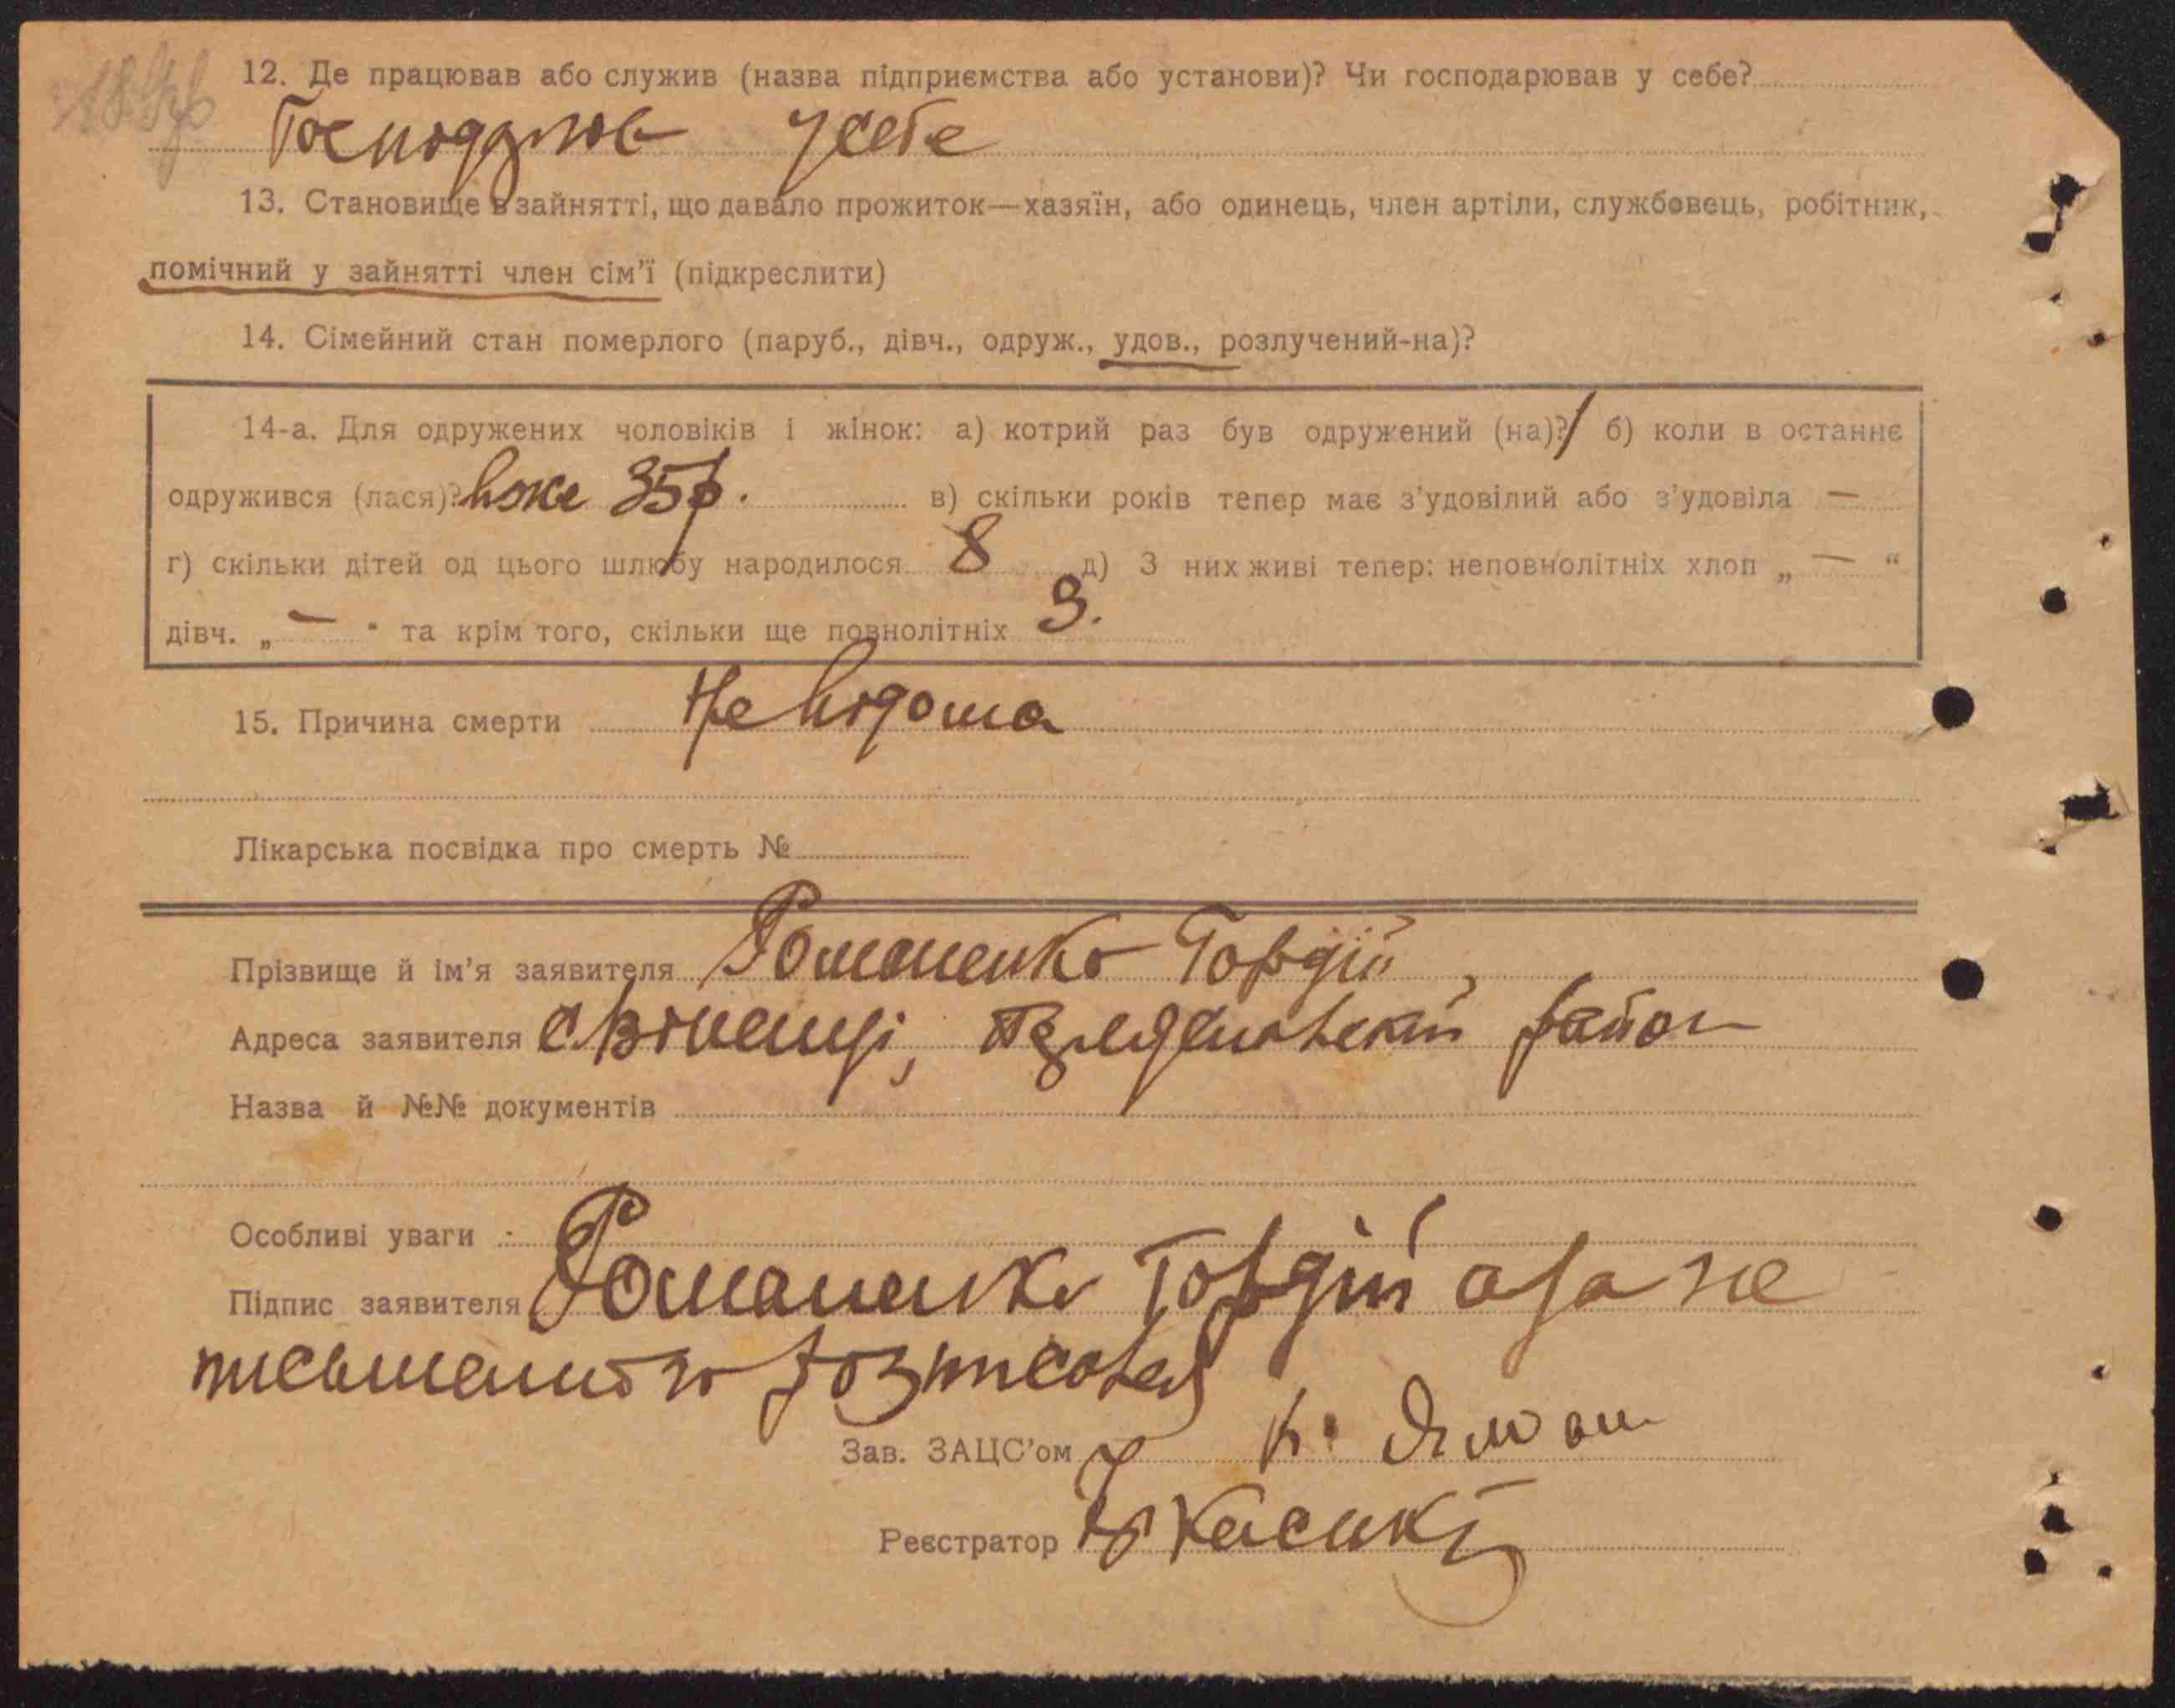 12. Де працював або служив (назва підприємства або установи)? Чи господарював у себе?
у себе
13. Становище в зайнятті, що давало прожиток—хазяїн, або одинець, член артіли, службовець, робітник,
помічний у зайнятті член сім'ї (підкреслити)
14. Сімейний стан померлого (паруб., дівч., одруж., удов., розлучений-на)?
14-а. Для одружених чоловіків і жінок: а) котрий раз був одружений (на)? 1 б) коли в останнє
одружився (лася)? вже 35 р. в) скільки років тепер має з'удовілий або з'удовіла —
г) скільки дітей од цього шлюбу народилося 8 д) З них живі тепер: неповнолітніх хлоп „ — “
дівч. „ — “ та крім того, скільки ще повнолітніх 3.
15. Причина смерти Не відома
Лікарська посвідка про смерть №
Прізвище й ім'я заявителя Романенко Гордій
Адреса заявителя район
Назва й №№ документів
Особливі уваги
Підпис заявителя Романенко Гордій а за не
письменного розписався
Зав. ЗАЦС'ом
Реєстратор